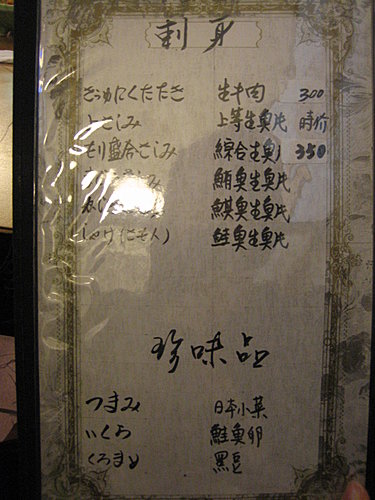 刺身
ぎゅうにくたたき 生牛肉 300
上さしみ 上等生魚片 時价
もり盛合さしみ 綜合生魚片 350
さしみ 鮪魚生魚片
鯕魚生魚片
しゃけ(さもん) 鮭魚生魚片
珍味品
つまみ 日本小菜
いくら 鮭魚卵
くろまめ 黑豆